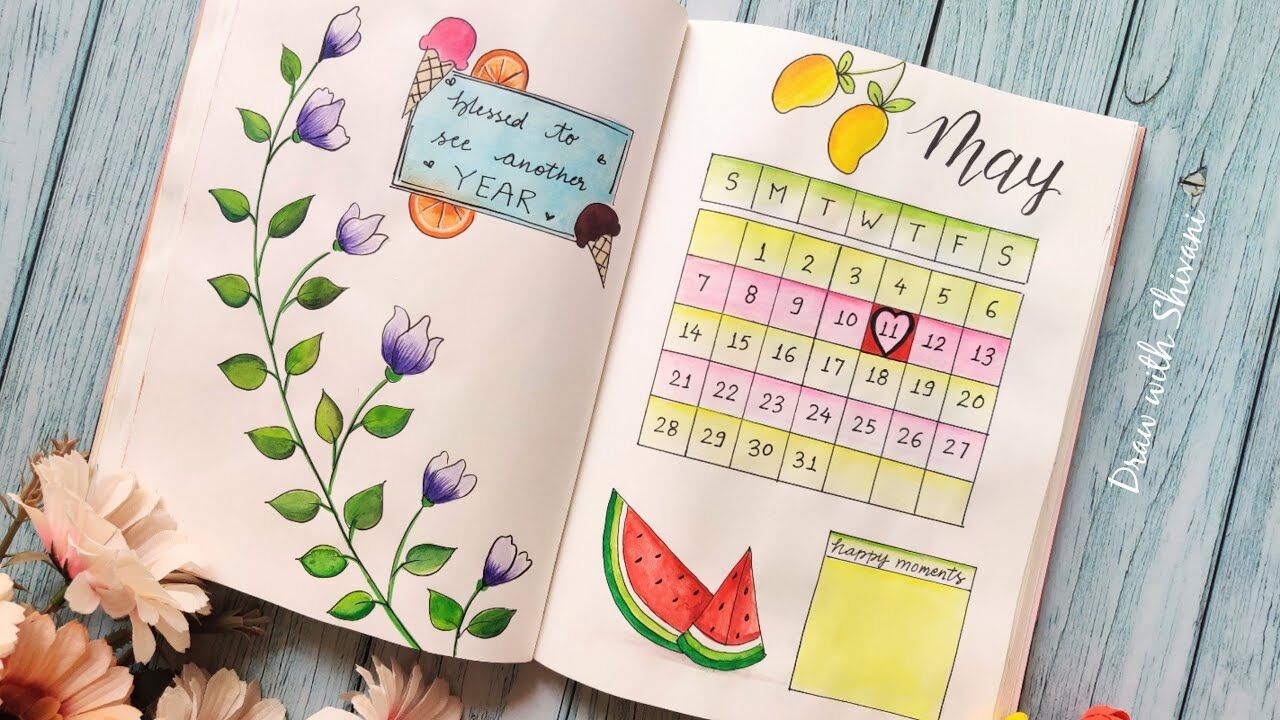 blessed to
see another
YEAR
May
S M T W T F S
1 2 3 4 5 6
7 8 9 10 11 12 13
14 15 16 17 18 19 20
21 22 23 24 25 26 27
28 29 30 31
happy moments
Draw with Shivani